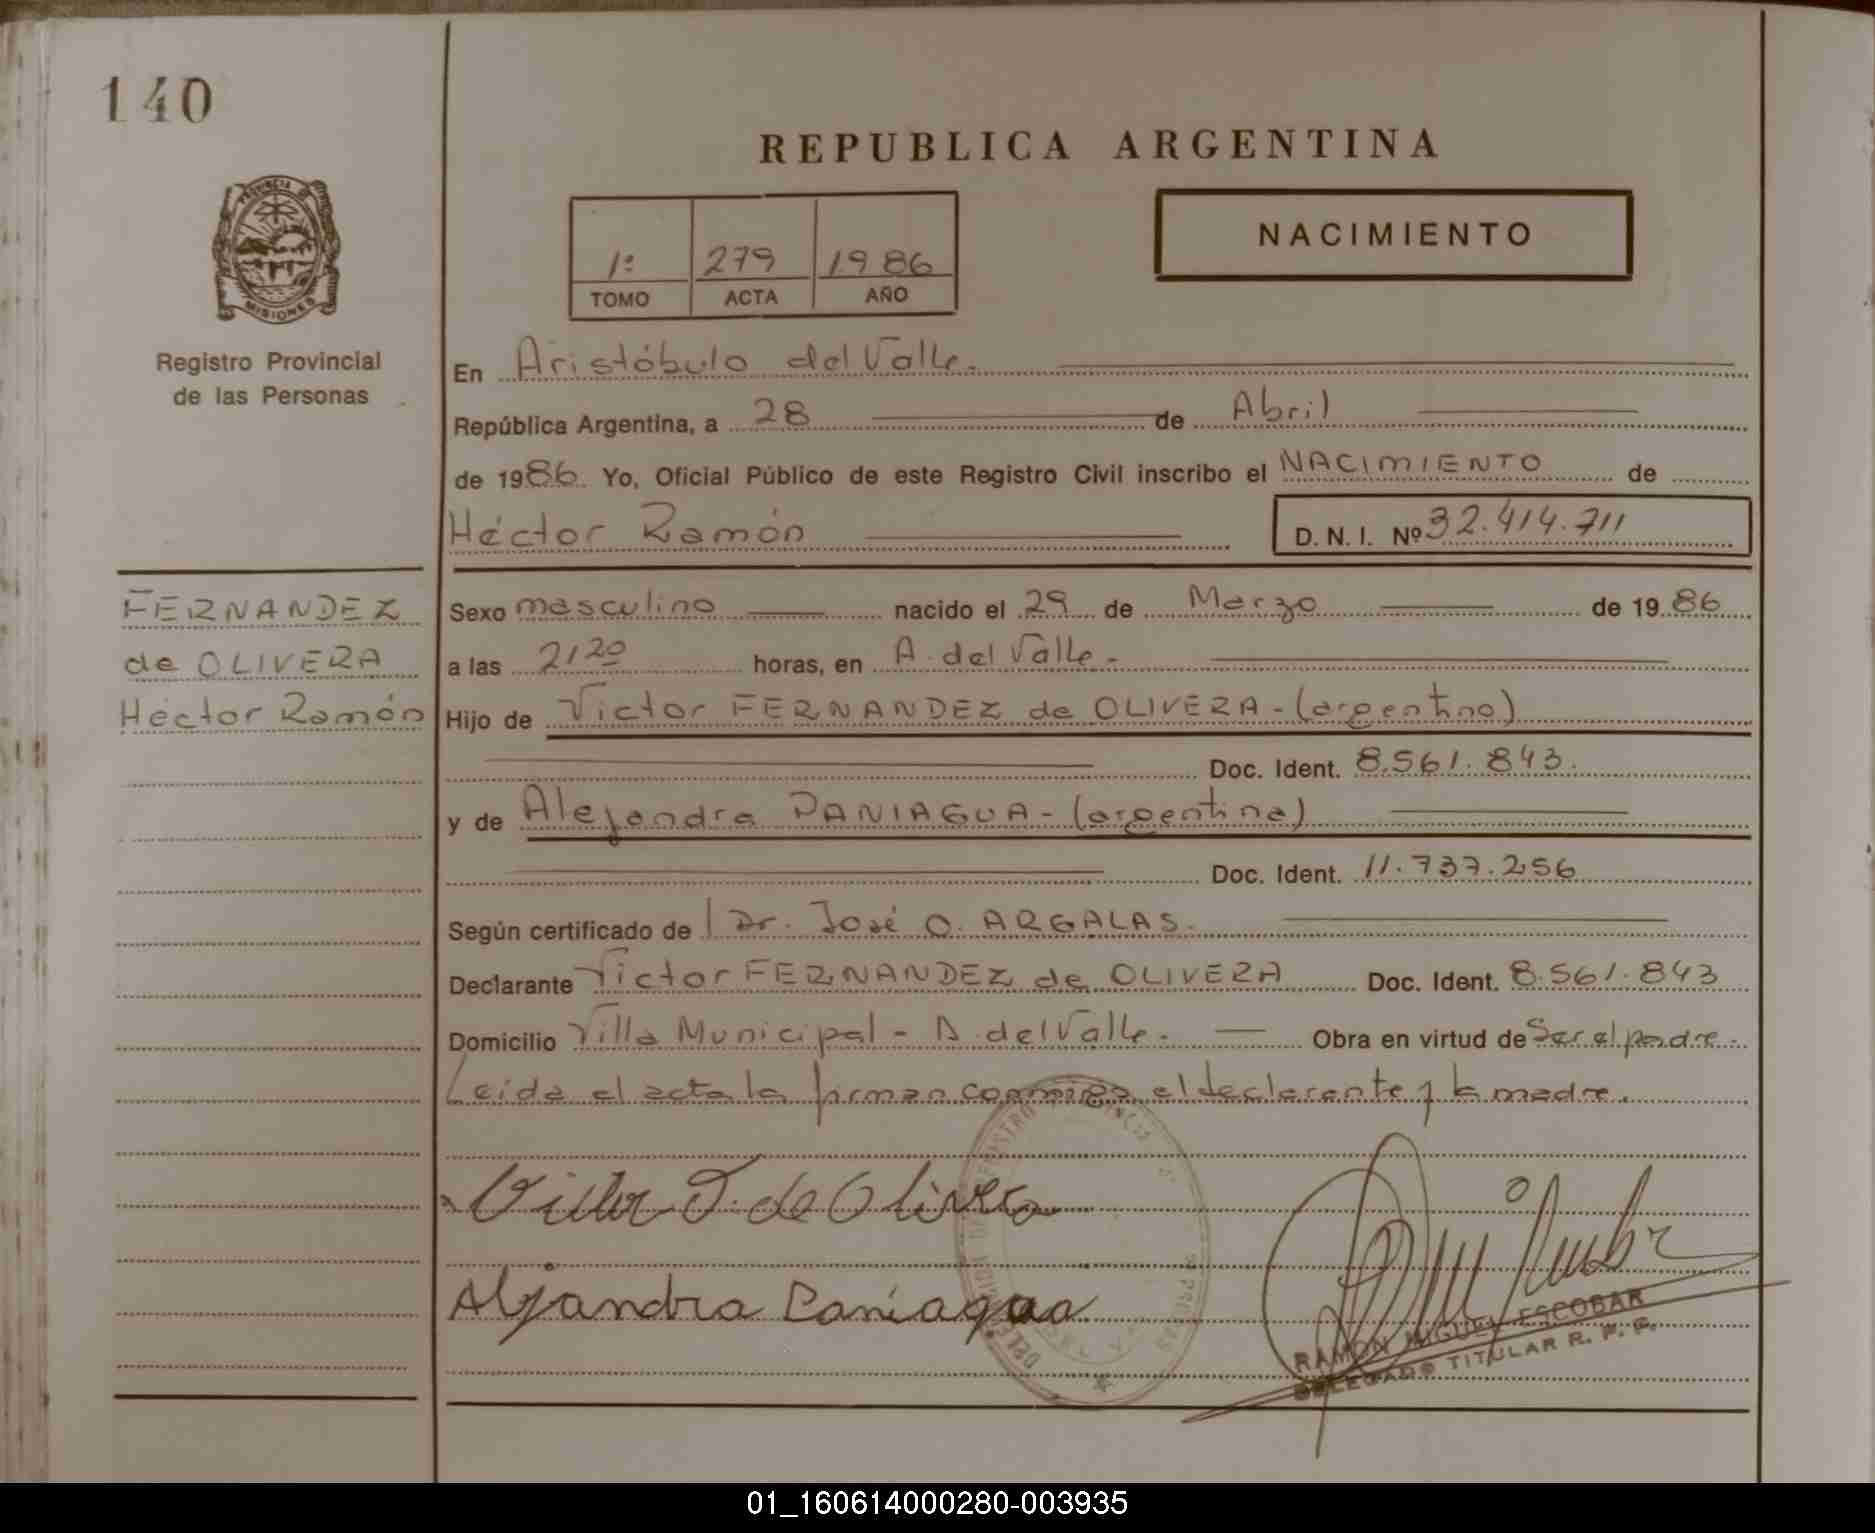 140
REPUBLICA ARGENTINA
PROVINCIA DE
MISIONES
Registro Provincial
de las Personas
1º 279 1986
TOMO ACTA AÑO
NACIMIENTO
En Aristóbulo del Valle.
República Argentina, a 28 de Abril
de 1986. Yo, Oficial Público de este Registro Civil inscribo el NACIMIENTO de
Héctor Ramón D. N. I. Nº 32.414.711
FERNANDEZ
de OLIVERA
Héctor Ramón
Sexo masculino nacido el 29 de Marzo de 1986
a las 21 20 horas, en A. del Valle.-
Hijo de Victor FERNANDEZ de OLIVERA - (argentino)
Doc. Ident. 8.561.843.
y de Alejandra PANIAGUA - (argentina)
Doc. Ident. 11.737.256
Según certificado de Dr. José O. ARGALAS.
Declarante Victor FERNANDEZ de OLIVERA Doc. Ident. 8.561.843
Domicilio Villa Municipal - A. del Valle. - Obra en virtud de Ser el padre.-
Leída el acta la firman conmigo el declarante y la madre.
Victor F. de Olivera
Aljandra Paniagua
RAMON MIGUEL ESCOBAR
DELEGADO TITULAR R. P. P.
01_160614000280-003935